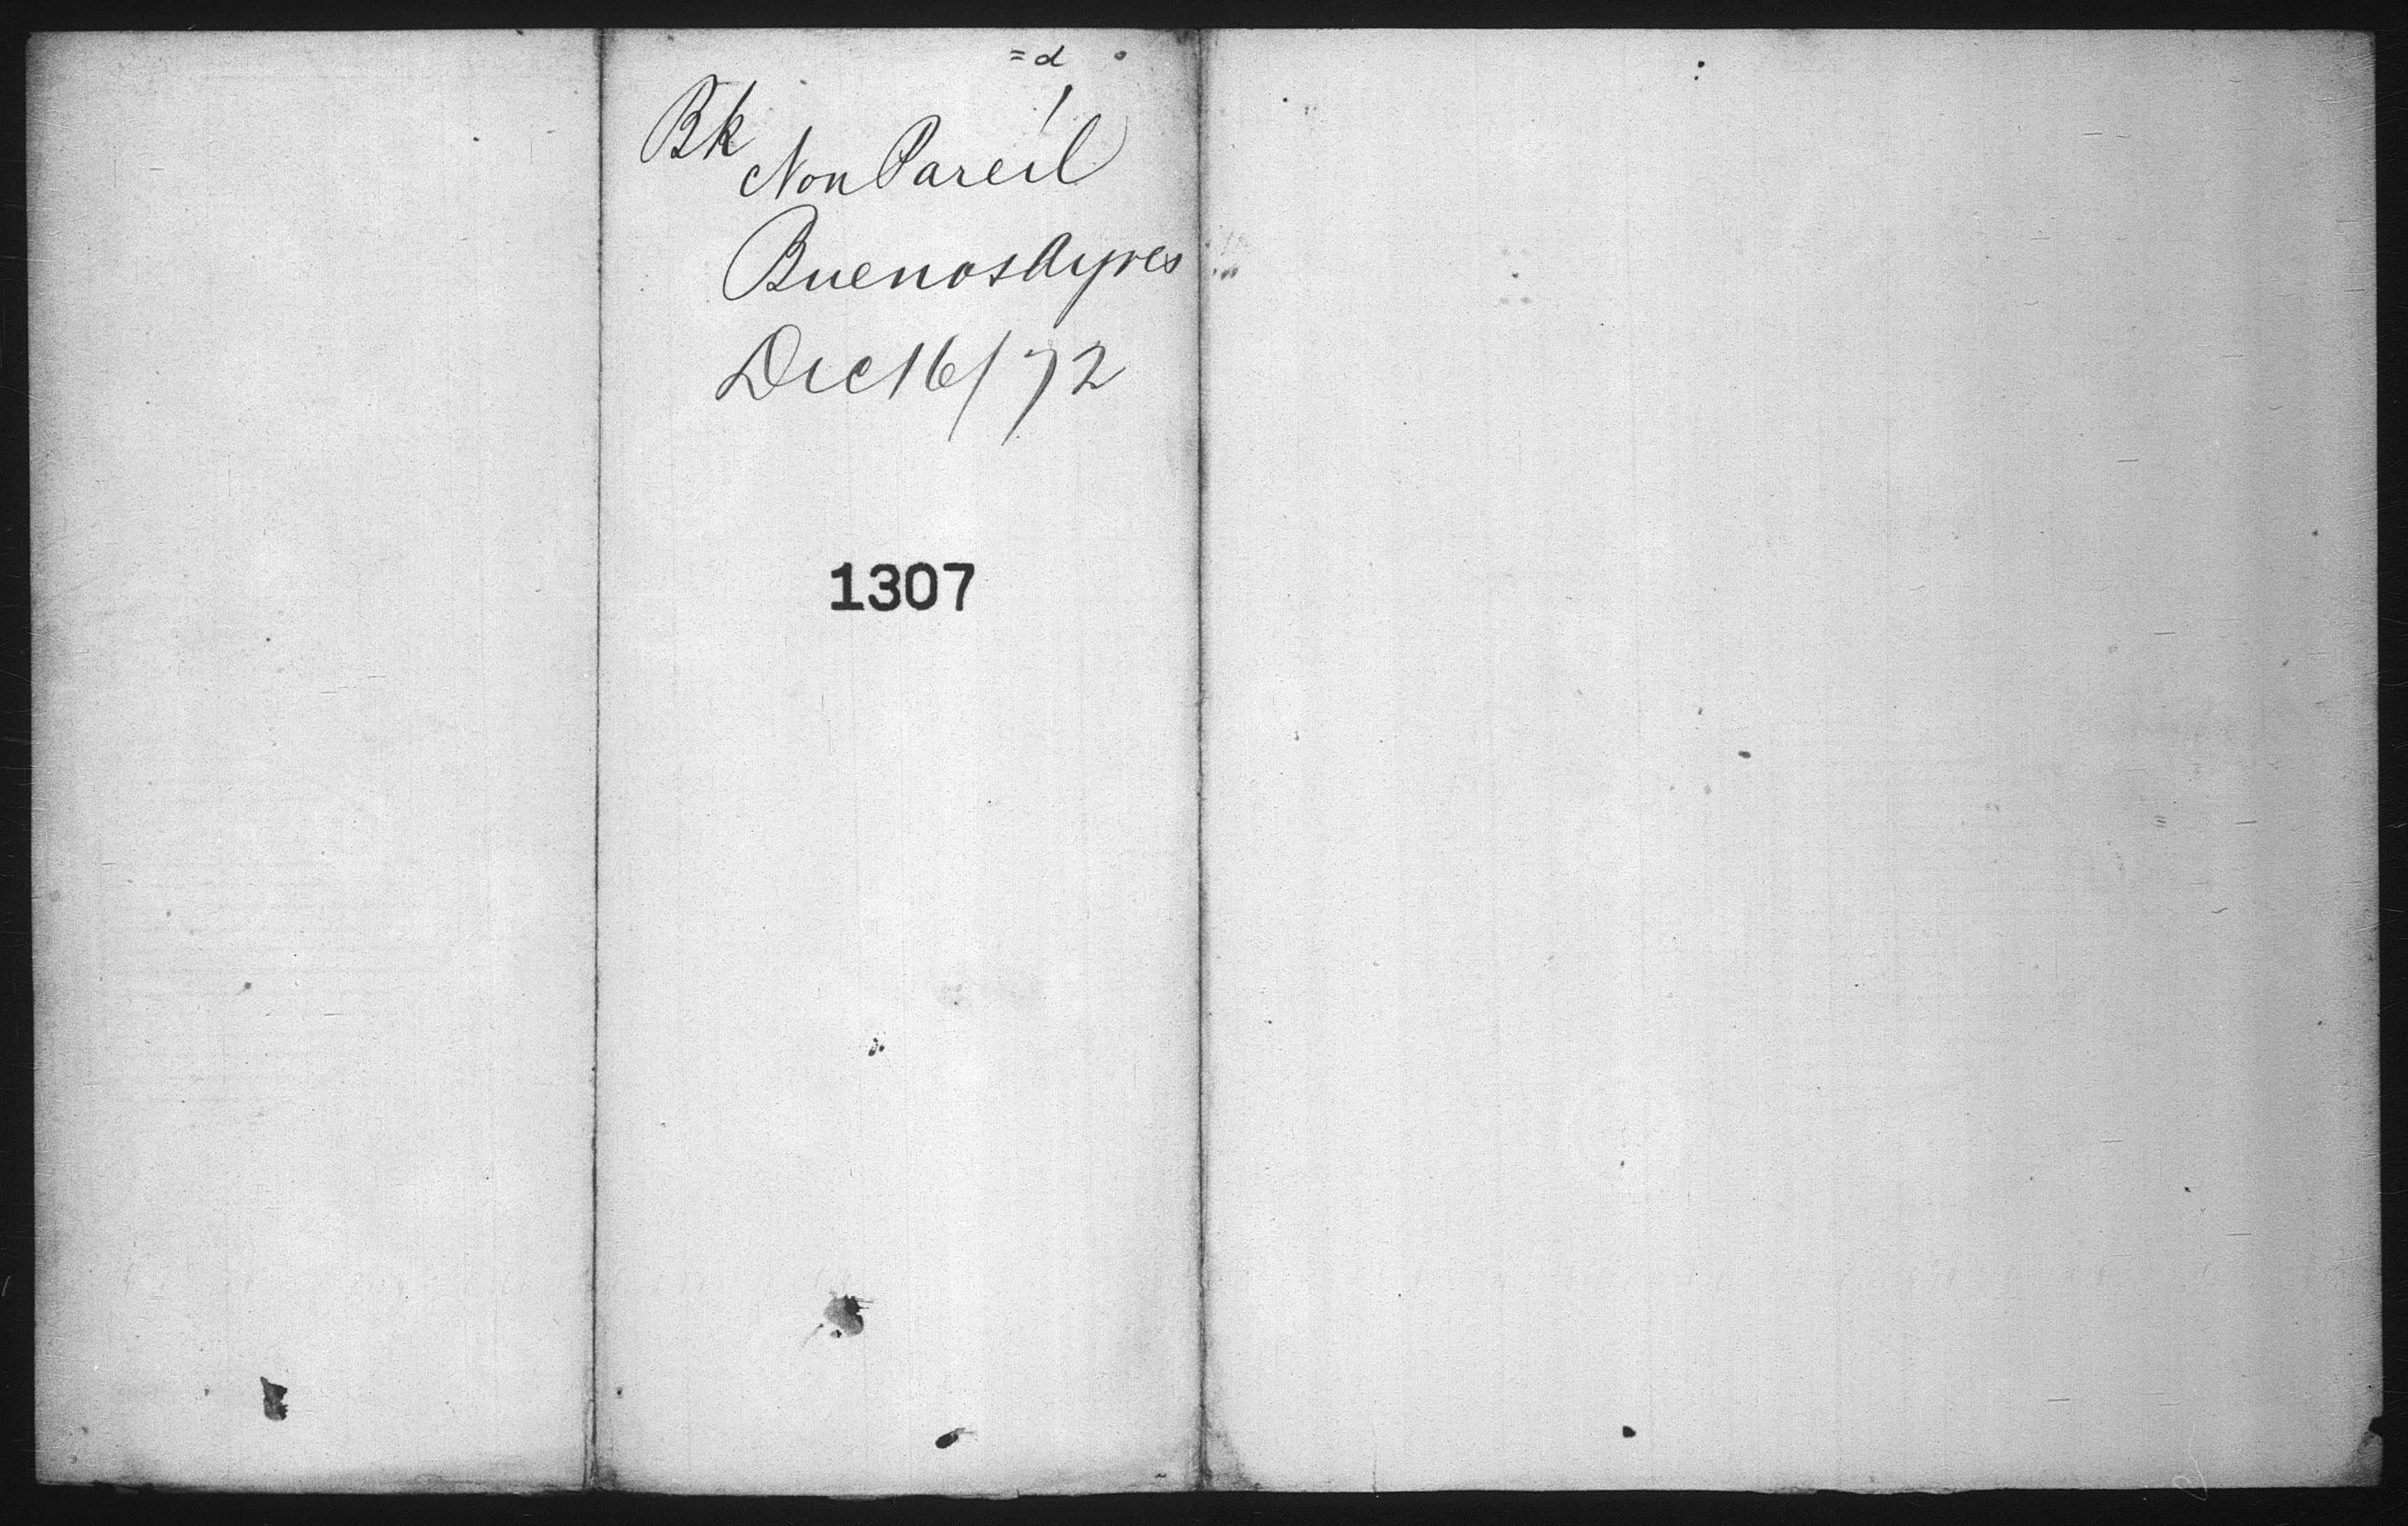 = d
Bk
Non Pareil
Buenos Ayres
Dec 16/72
1307